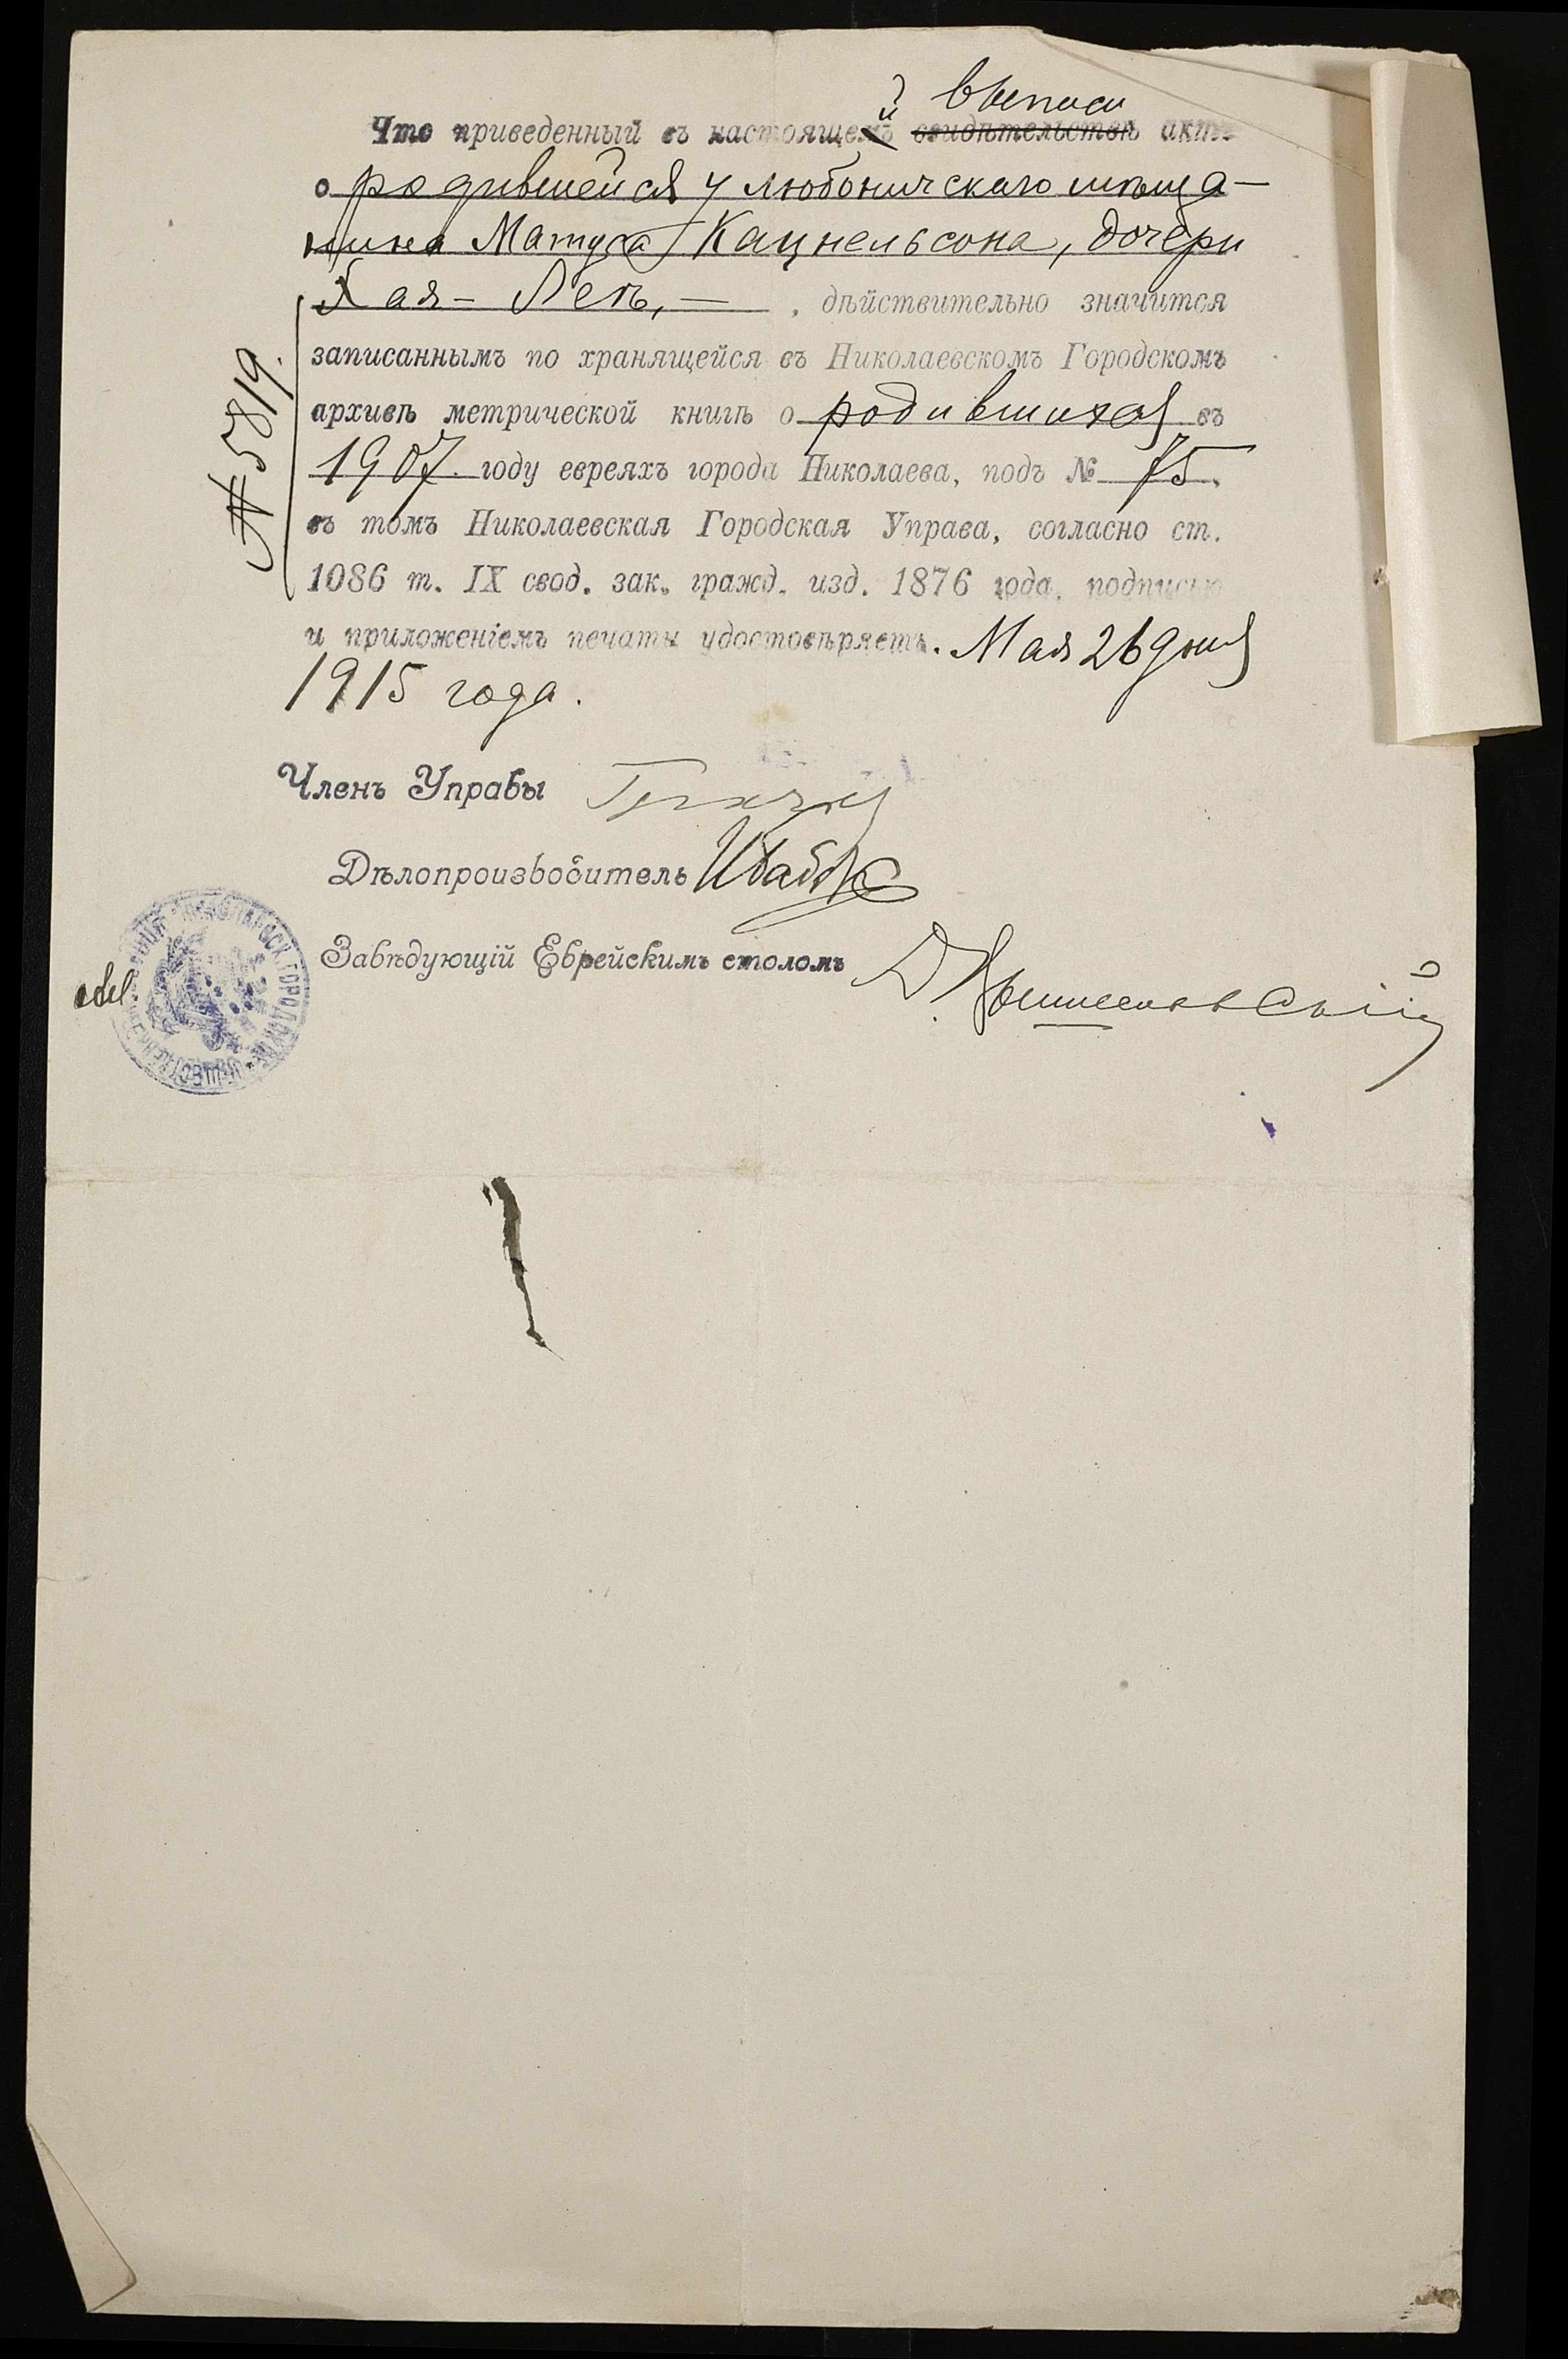 й выписи
Что приведенный въ настоящемъ свидѣтельствѣ актъ
о родившейся у любоничскаго мѣща-
нина Матуса Кацнельсона, дочери
Хая-Леѣ, — , дѣйствительно значится
записаннымъ по хранящейся въ Николаевскомъ Городскомъ
архивѣ метрической книгѣ о родившихся въ
1907 году евреяхъ города Николаева, подъ № 75,
въ томъ Николаевская Городская Управа, согласно ст.
1086 т. IX свод. зак. гражд. изд. 1876 года, подписью
и приложеніемъ печати удостовѣряетъ. Мая 26 дня
1915 года.
№ 5819.
Членъ Управы
Дѣлопроизводитель
Завѣдующій Еврейскимъ столомъ